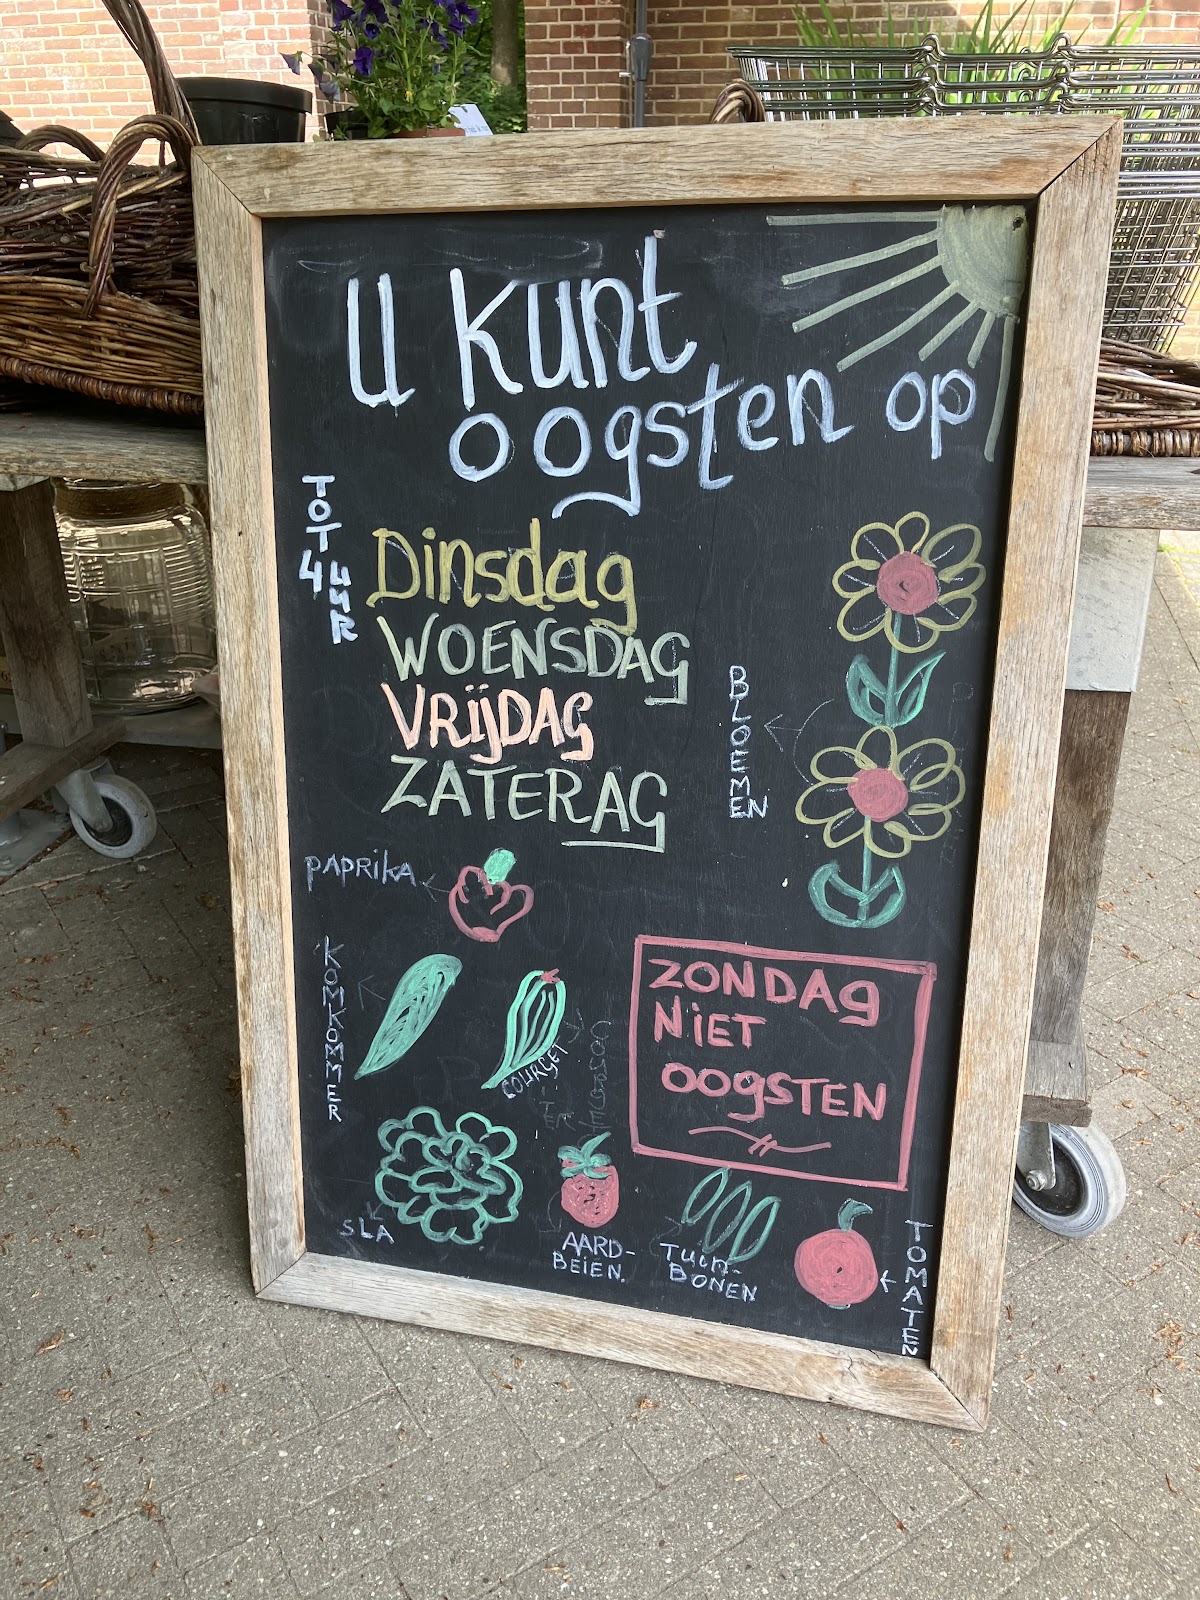 U KUNT
oogsten op
TOT
4 UUR
Dinsdag
WOENSDAG
VRIJDAG
ZATERAG
BLOEMEN
PAPRIKA
KOMKOMMER
COURGET
TE
ZONDAG
NIET
OOGSTEN
SLA
AARD-
BEIEN.
Tuin-
BONEN
TOMATEN